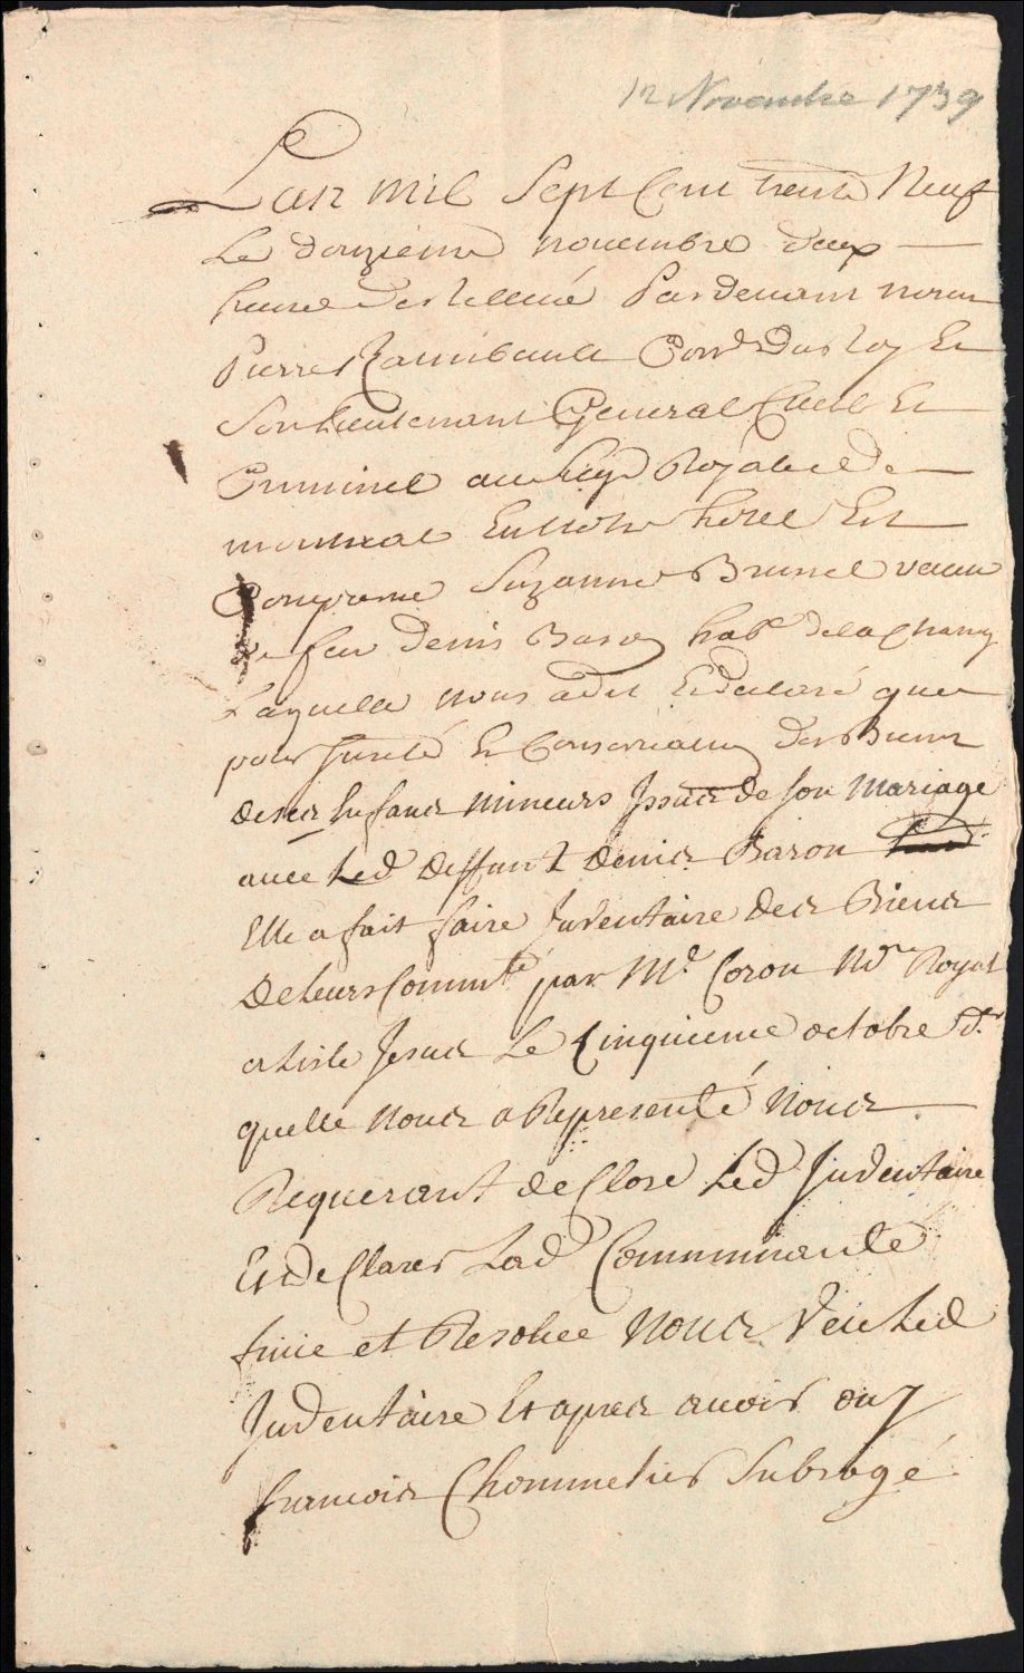 12 Novembre 1739
Lan mil Sept Cent trente Neuf
Le douzieme nouembre deux
heures de Relleueé Pardeuant nous
Pierre Raimbault Con.er Du Roy Et
Son Lieutenant General Ciuil Et
Criminel au siege Royalle de
montreal En notre hotel Est
Comparue Suzanne Brunel veuue
de feu denis Baron hab.t
Laquelle nous a dit Et declaré que
pour sureté Et Conservation des Biens
de ses Enfans Mineurs Issus de son Mariage
auec Led Deffunt Denis Baron
Elle a fait faire Inventaire des Biens
De Leurs Commté par Me Coron Nre Royal
a Lisle Jesus Le Cinquieme octobre d.r
quelle Nous a Representé Nous
Requerant de Clore Led Inventaire
Et de Clarer Lad Communauté
finie et Resolue Nous Veu Led
Inventaire Et apres auoir ouy
francois Chommelier Subrogé